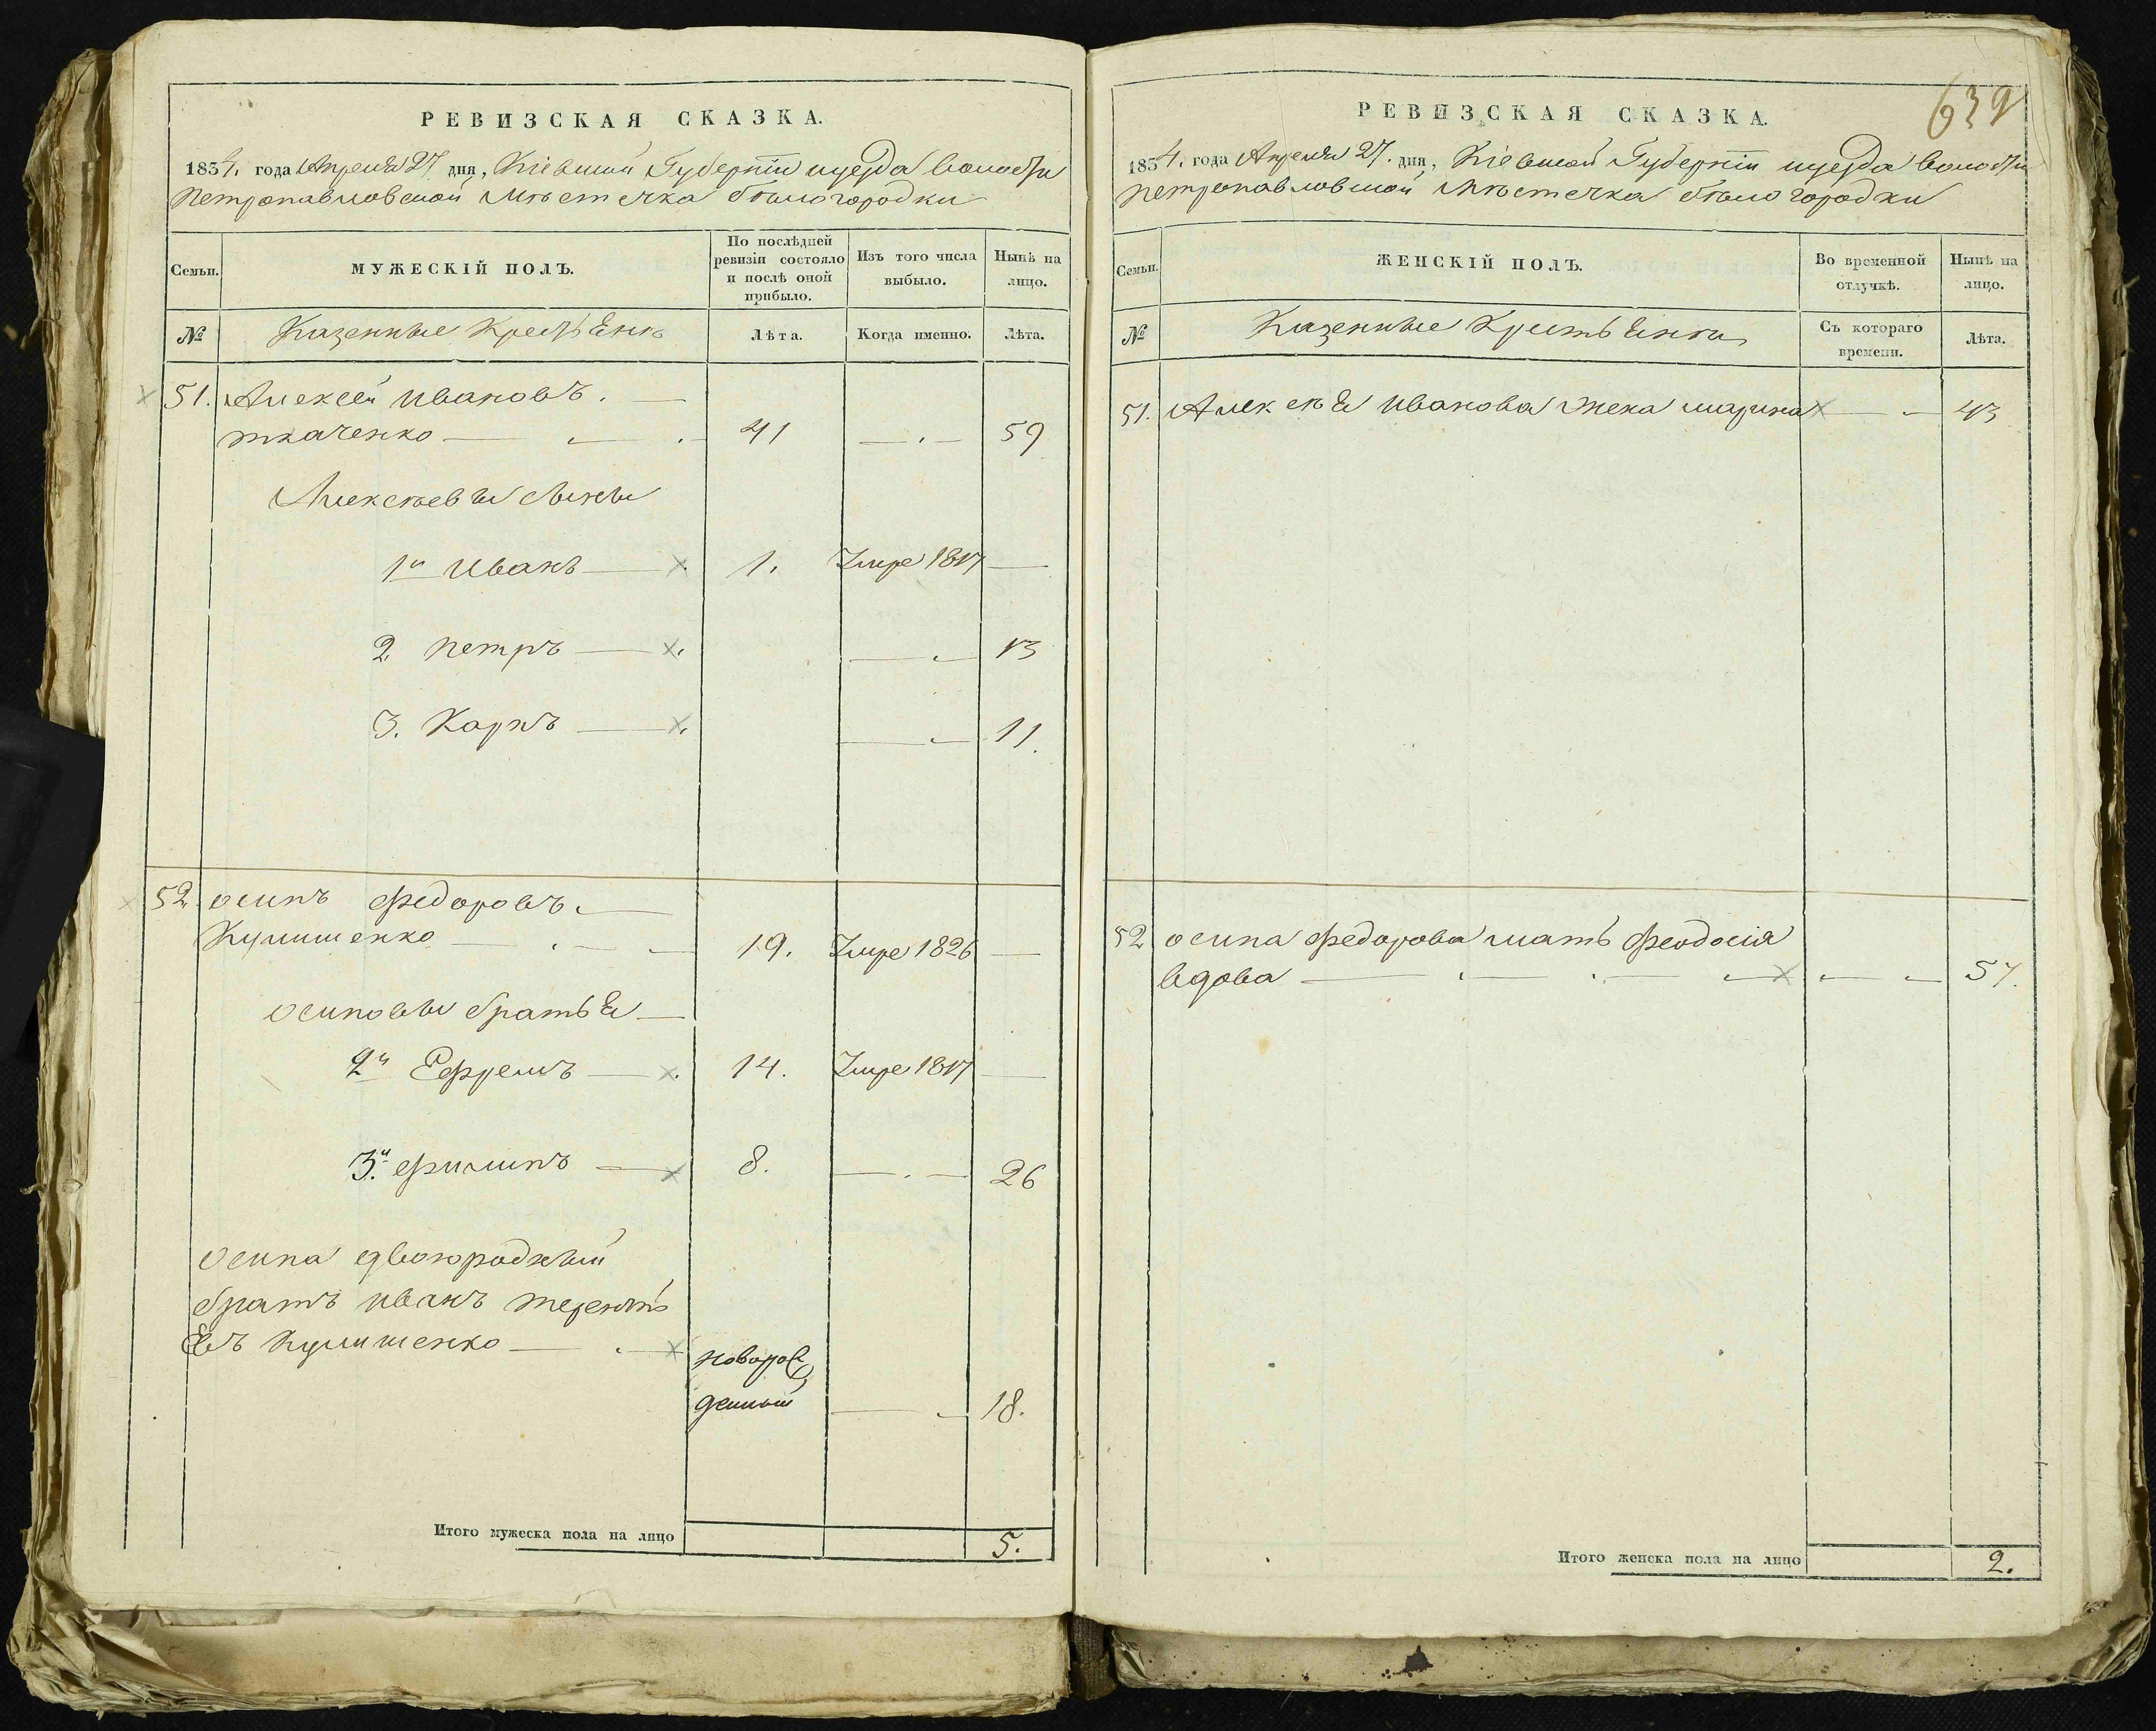 РЕВИЗСКАЯ СКАЗКА.
1834. года Апреля 27 дня, Кіевской Губерніи иуезда волости
Петропавловской мѣстечка бѣлогородки
Семьи.
МУЖЕСКІЙ ПОЛЪ.
По послѣдней
ревизіи состояло
и послѣ оной
прибыло.
Изъ того числа
выбыло.
Нынѣ на
лицо.
№
Казенные Крестьяне
Лѣта.
Когда именно.
Лѣта.
51. Алексей Ивановъ.
ткаченко 41 59
Алексѣевы сыны
1й Иванъ 1. Умре 1817
2 Петръ 13
3. Карпъ 11.
52 осипъ Федоровъ
Кулишенко 19. Умре 1826
осиповы братья
2й Ефремъ 14. Умре 1817
3й Филипъ 8. 26
осипа двоюродный
братъ Иванъ терентъ
евъ Кулишенко
новорож
денный 18.
Итого мужеска пола на лицо 5.
639
РЕВИЗСКАЯ СКАЗКА.
1834. года Апреля 27. дня, Кіевской Губерніи иуезда волости
Петропавловской мѣстечка бѣлогородки
Семьи.
ЖЕНСКІЙ ПОЛЪ.
Во временной
отлучкѣ.
Нынѣ на
лицо.
№
Казенные Крестьянки
Съ котораго
времени.
Лѣта.
51. Алексѣя Иванова жена марина 43
52 осипа Федорова мать Феодосія
вдова 57.
Итого женска пола на лицо 2.